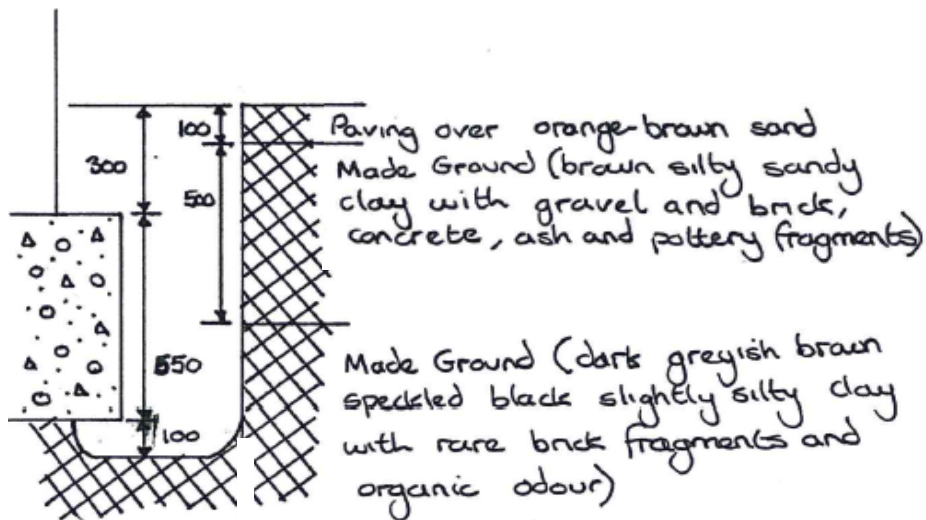 100
Paving over orange-brown sand
300
Made Ground (brown silty sandy
500
clay with gravel and brick,
concrete, ash and pottery fragments)
550
Made Ground (dark greyish brown
speckled black slightly silty clay
100
with rare brick fragments and
organic odour)